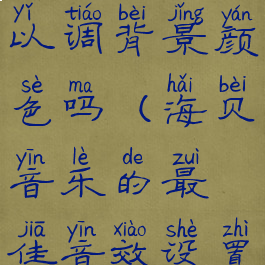 yǐ tiáo bèi jǐng yán
以调背景颜
sè ma hǎi bèi
色吗（海贝
yīn lè de zuì
音乐的最
jiā yīn xiào shè zhì
佳音效设置